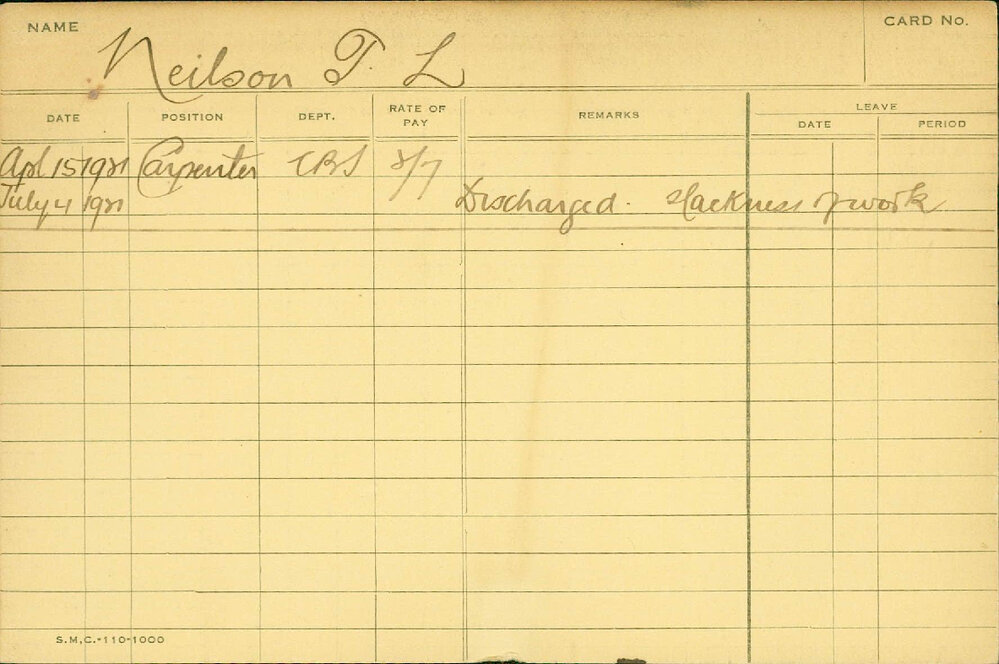 NAME
Neilson T. L
CARD No.
DATE
POSITION
DEPT.
RATE OF PAY
REMARKS
LEAVE
DATE
PERIOD
Apl 15 1921 Carpenter 2/7
July 4 1921 Discharged. Slackness of work
S.M.C.-110-1000